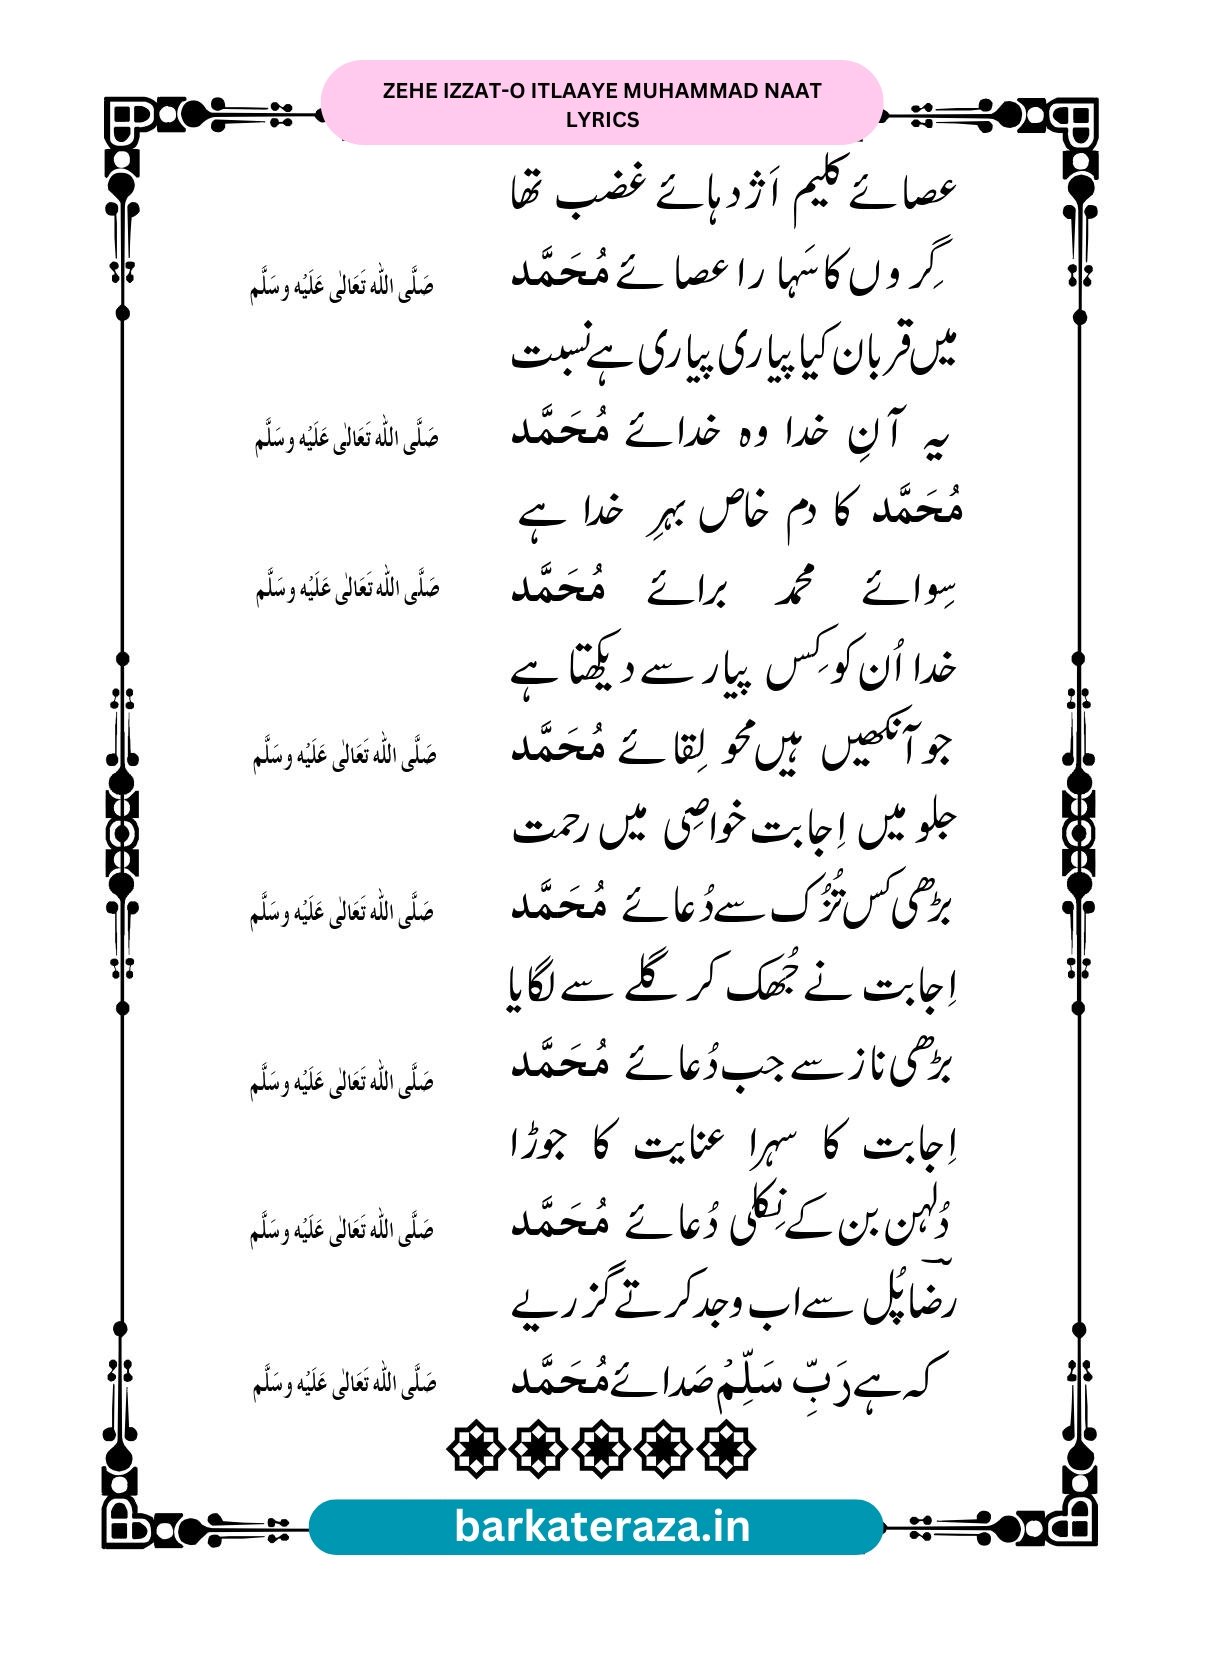 ZEHE IZZAT-O ITLAAYE MUHAMMAD NAAT
LYRICS
عصائے کلیم اَژدہائے غضب تھا
گِروں کا سَہارا عصائے مُحَمَّد صَلَّی اللہ تَعَالٰی عَلَیْہ وسَلَّم
میں قرباں کیا پیاری پیاری ہے نسبت
یہ آنِ خدا وہ خدائے مُحَمَّد صَلَّی اللہ تَعَالٰی عَلَیْہ وسَلَّم
مُحَمَّد کا دم خاص بہرِ خدا ہے
سِوائے محمد برائے مُحَمَّد صَلَّی اللہ تَعَالٰی عَلَیْہ وسَلَّم
خدا اُن کو کِس پیار سے دیکھتا ہے
جو آنکھیں ہیں محو لِقائے مُحَمَّد صَلَّی اللہ تَعَالٰی عَلَیْہ وسَلَّم
جلو میں اِجابت خواصِی میں رحمت
بڑھی کس تُزُک سے دُعائے مُحَمَّد صَلَّی اللہ تَعَالٰی عَلَیْہ وسَلَّم
اِجابت نے جُھک کر گلے سے لگایا
بڑھی ناز سے جب دُعائے مُحَمَّد صَلَّی اللہ تَعَالٰی عَلَیْہ وسَلَّم
اِجابت کا سہرا عنایت کا جوڑا
دُلہن بن کے نِکلی دُعائے مُحَمَّد صَلَّی اللہ تَعَالٰی عَلَیْہ وسَلَّم
رضاؔ پُل سے اب وجد کرتے گزریے
کہ ہے رَبِّ سَلِّمْ صَدائے مُحَمَّد صَلَّی اللہ تَعَالٰی عَلَیْہ وسَلَّم
barkateraza.in